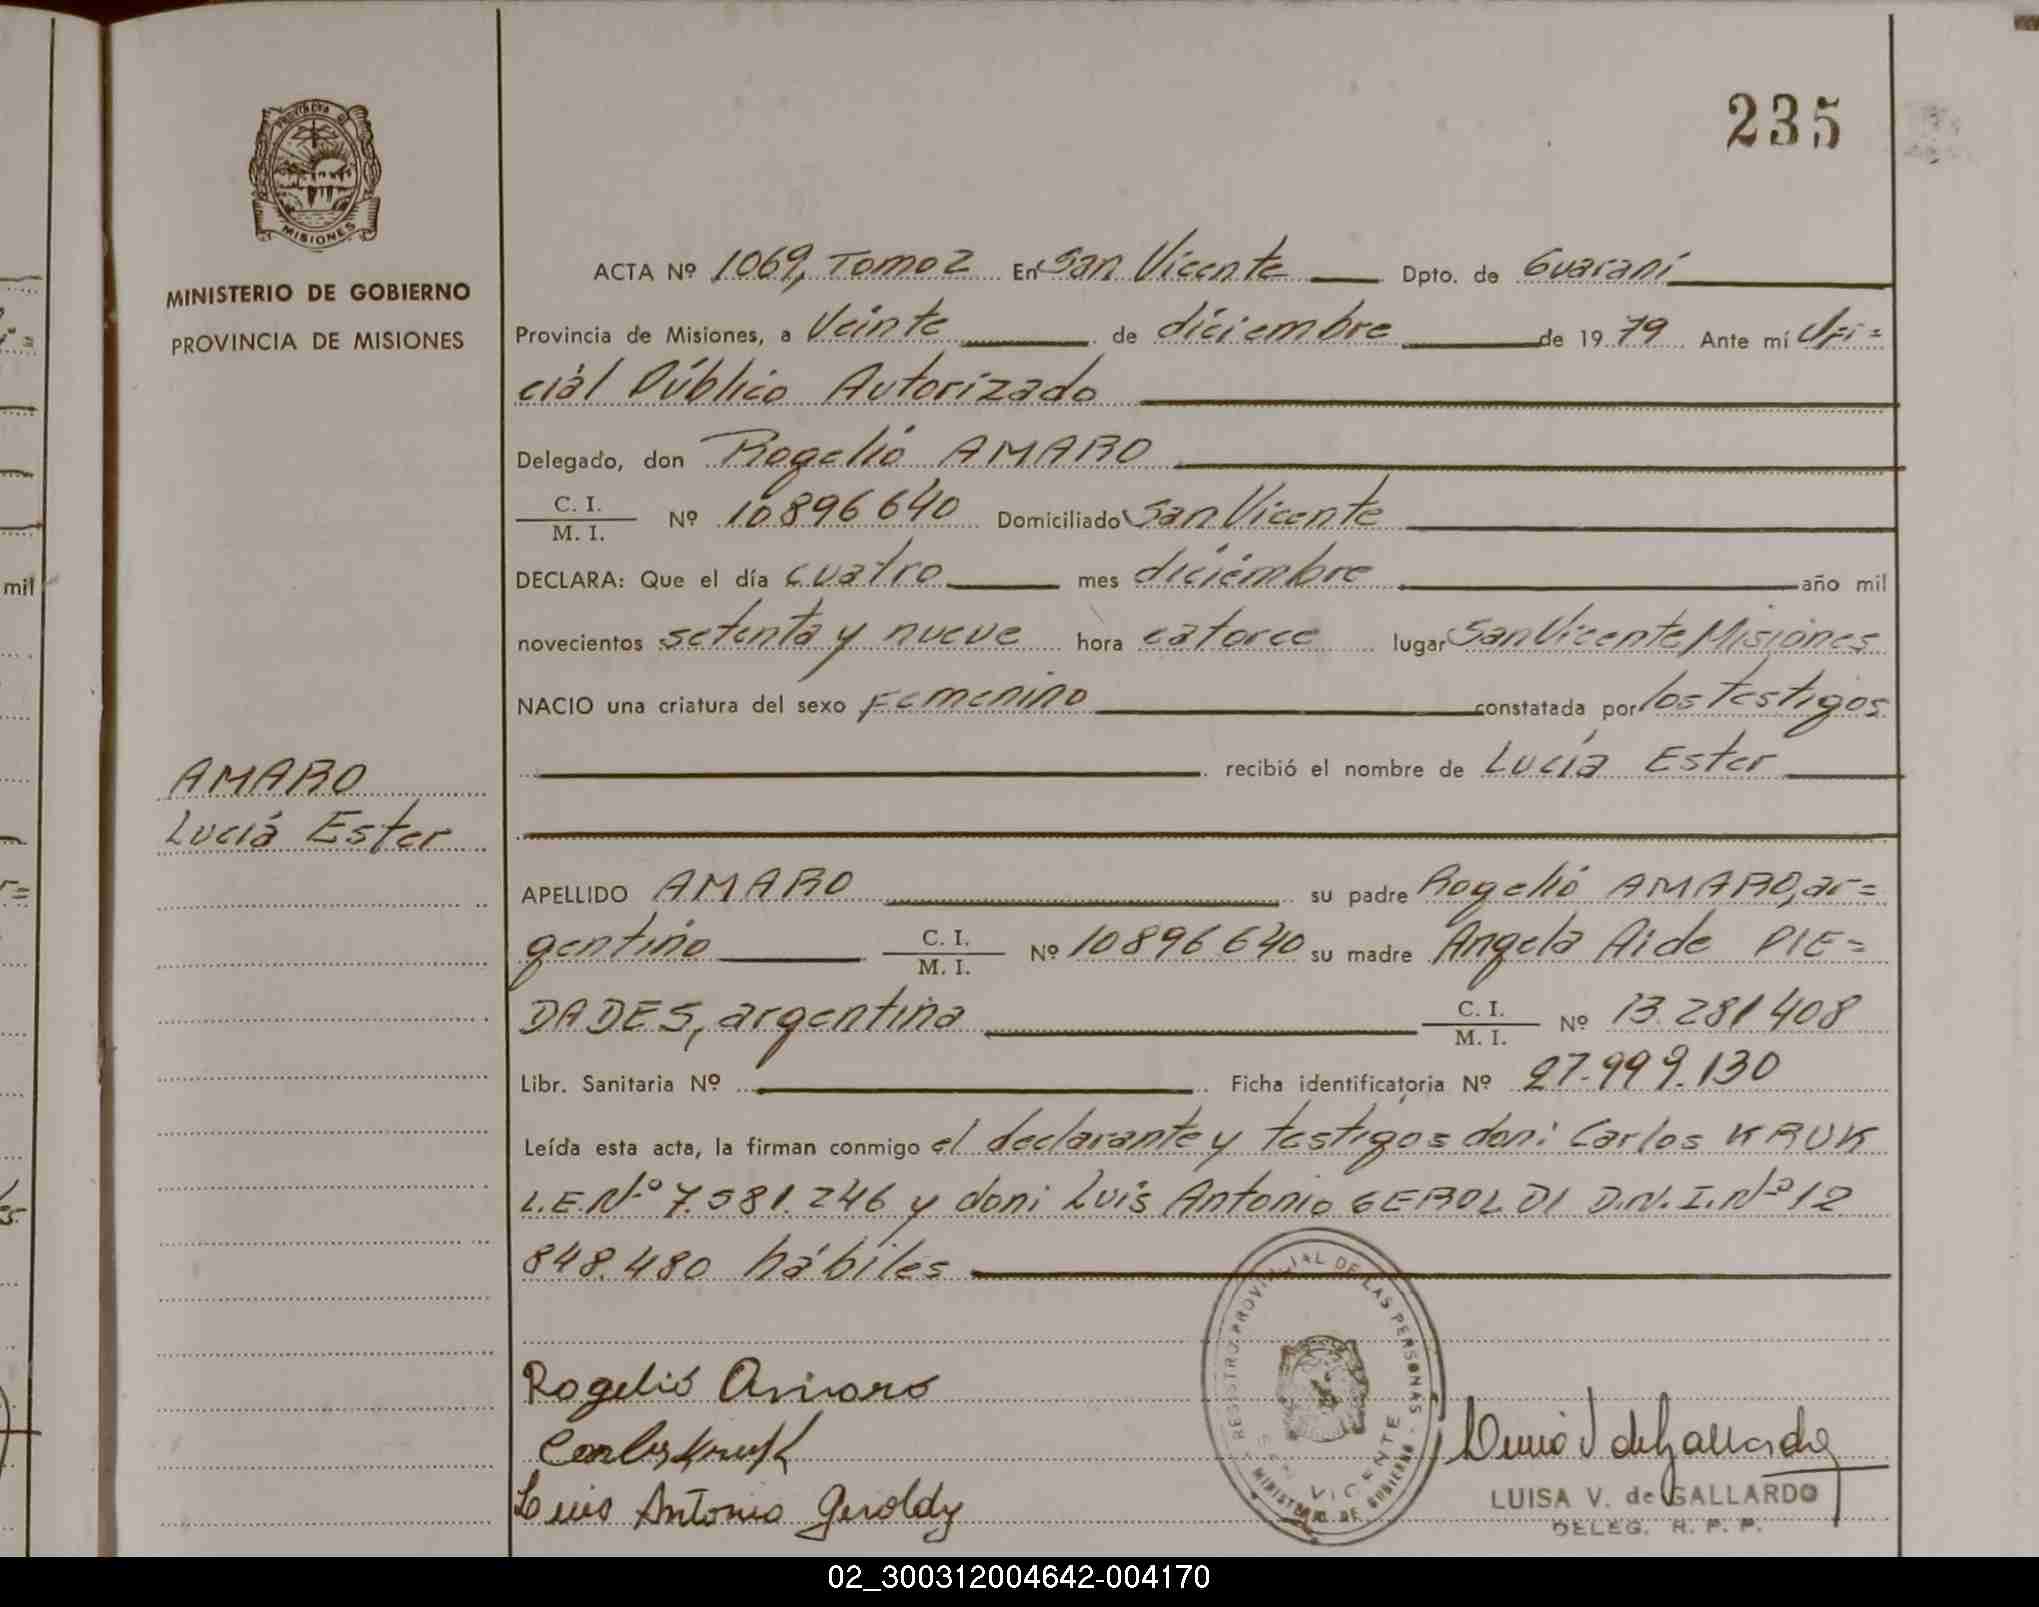 235
PROVINCIA DE
MISIONES
MINISTERIO DE GOBIERNO
PROVINCIA DE MISIONES
ACTA Nº 1069, Tomo 2 En San Vicente Dpto. de Guaraní
Provincia de Misiones, a Veinte de diciembre de 1979 Ante mí Ofi=
cial Público Autorizado
Delegado, don Rogelio AMARO
C. I.
M. I. Nº 10896640 Domiciliado San Vicente
DECLARA: Que el día cuatro mes diciembre año mil
novecientos setenta y nueve hora catorce lugar San Vicente Misiones
NACIO una criatura del sexo Femenino constatada por los testigos
recibió el nombre de Lucía Ester
AMARO
Lucía Ester
APELLIDO AMARO su padre Rogelio AMARO, ar=
gentino C. I. M. I. Nº 10896640 su madre Angela Aide PIE=
DADES, argentina C. I. M. I. Nº 13.281408
Libr. Sanitaria Nº Ficha identificatoria Nº 27.999.130
Leída esta acta, la firman conmigo el declarante y testigos don: Carlos KRUK
L.E.Nº 7.581.246 y don: Luis Antonio GEROLDI D.N.I.Nº 12
848.480 hábiles
Rogelio Amaro
Carlos Kruk
Luis Antonio Geroldy
REGISTRO PROVINCIAL DE LAS PERSONAS
SAN VICENTE
MINISTERIO DE GOBIERNO
Luisa V de Gallardo
LUISA V. de GALLARDO
DELEG. R. P. P.
mil
02_300312004642-004170